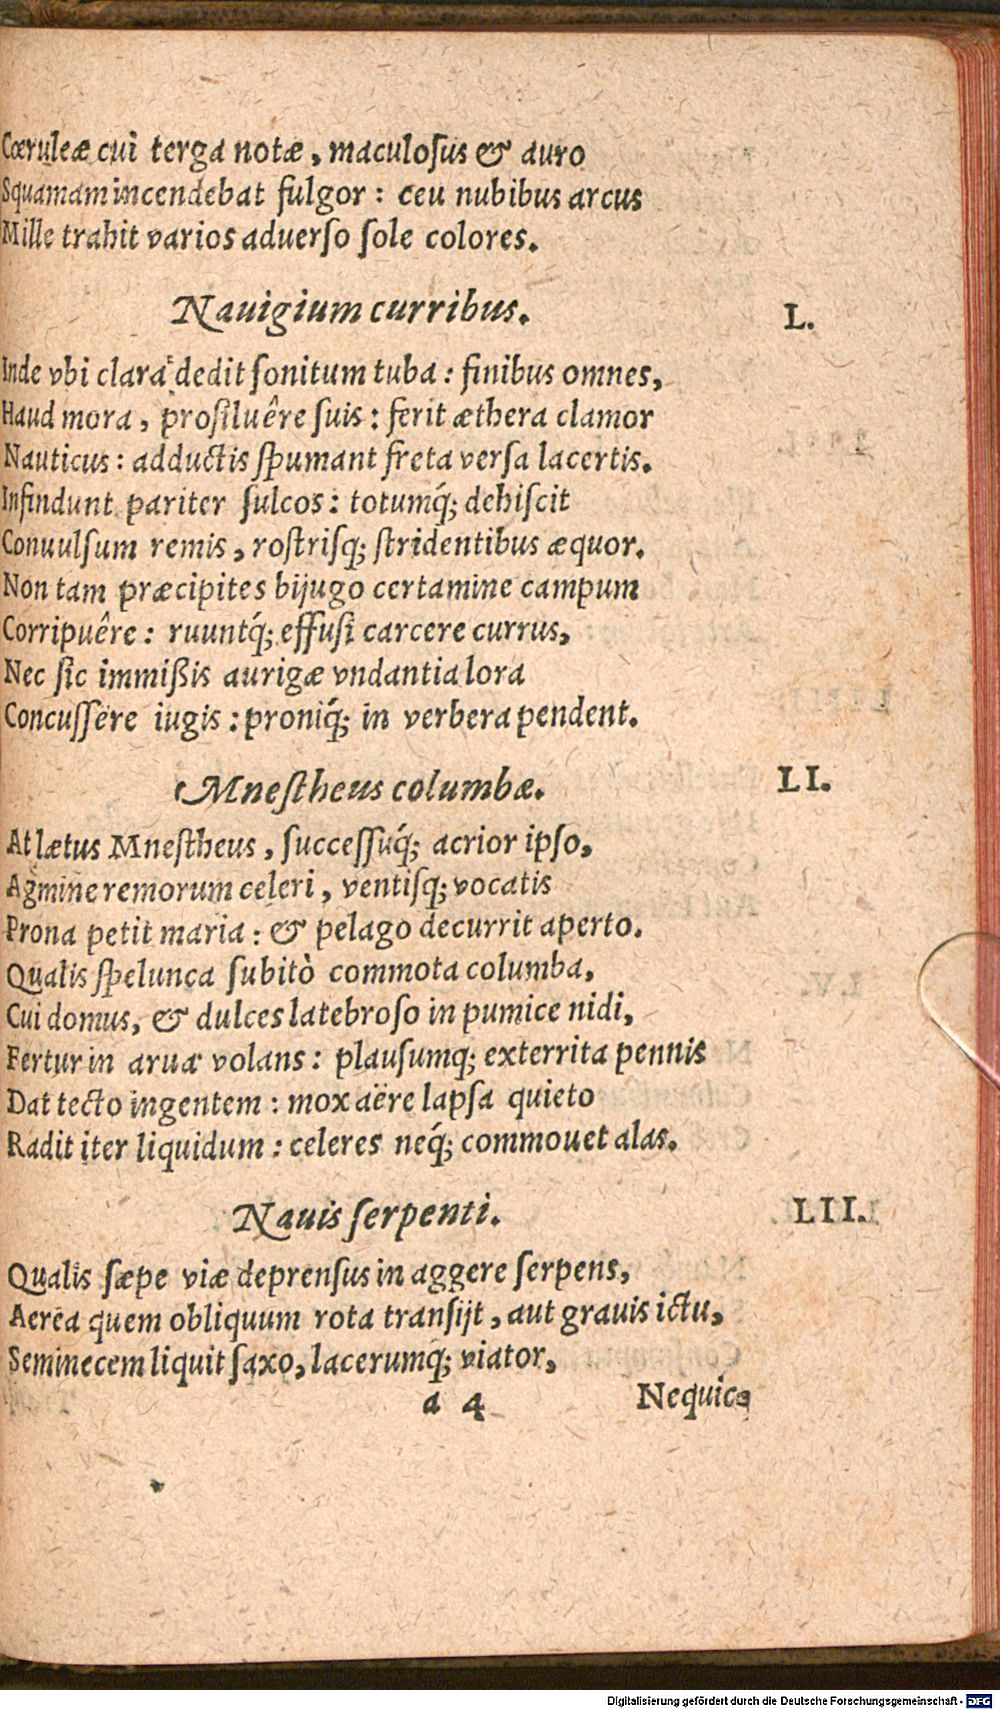 Cœruleæ cui terga notæ, maculoſus & auro
Squamam incendebat fulgor: ceu nubibus arcus
Mille trahit varios aduerſo ſole colores.
Nauigium curribus. L.
Inde vbi clara dedit ſonitum tuba: finibus omnes,
Haud mora, proſiluêre ſuis: ferit æthera clamor
Nauticus: adductis ſpumant freta verſa lacertis.
Infindunt pariter ſulcos: totumq́; dehiſcit
Conuulſum remis, roſtriſq; ſtridentibus æquor.
Non tam præcipites bijugo certamine campum
Corripuêre: ruuntq́; effuſi carcere currus,
Nec ſic immißis aurigæ vndantia lora
Concuſſere iugis: proniq́; in verbera pendent.
Mneſtheus columbæ. LI.
At lætus Mneſtheus, ſucceſſuq́; acrior ipſo,
Agmine remorum celeri, ventiſq; vocatis
Prona petit maria: & pelago decurrit aperto.
Qualis ſpelunca ſubitò commota columba,
Cui domus, & dulces latebroſo in pumice nidi,
Fertur in arua volans: plauſumq; exterrita pennis
Dat tecto ingentem: mox aëre lapſa quieto
Radit iter liquidum: celeres neq́; commouet alas.
Nauis ſerpenti. LII.
Qualis ſæpe viæ deprenſus in aggere ſerpens,
Aerea quem obliquum rota tranſijt, aut grauis ictu,
Seminecem liquit ſaxo, lacerumq; viator,
a 4 Nequic⸗
Digitalisierung gefördert durch die Deutsche Forschungsgemeinschaft - DFG